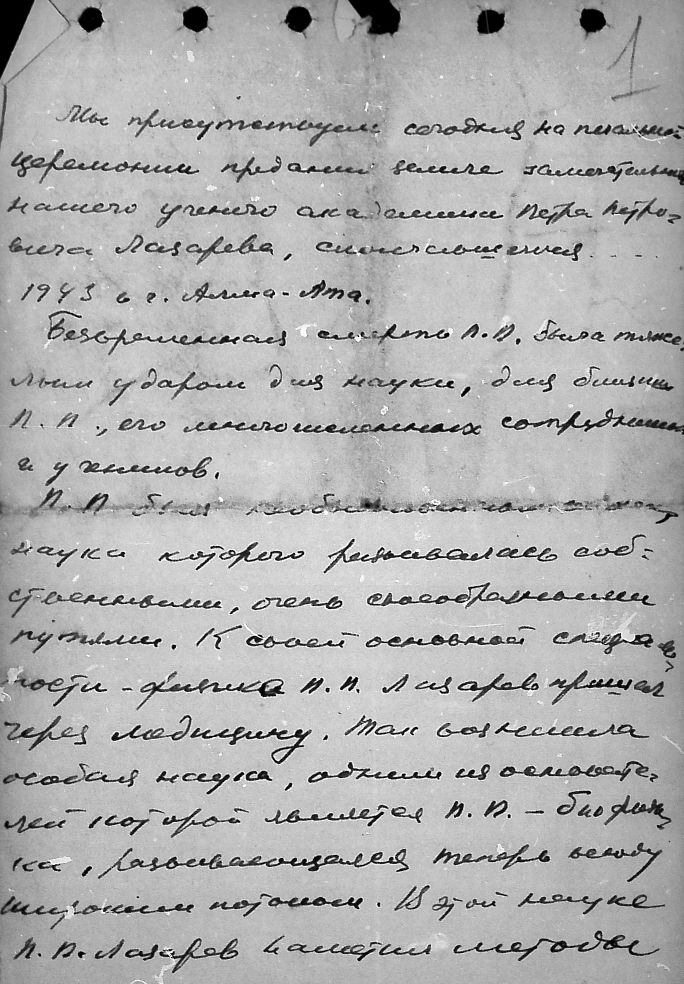 1
Мы присутствуем сегодня на печальной
церемонии предания земле замечательного
нашего ученого академика Петра Петро-
вича Лазарева, скончавшегося ....
1943 в г. Алма-Ата.
Безвременная смерть П.П. была тяже-
лым ударом для науки, для близких
П.П., его многочисленных сотрудников
и учеников.
П.П. был
науки которого развивалась соб-
ственными, очень своеобразными
путями. К своей основной специаль-
ности - физике П.П. Лазарев пришел
через медицину. Так возникла
особая наука, одним из основате-
лей которой является П.П. – биофизи-
ка, развивающаяся теперь всюду
широким потоком. В этой науке
П.П. Лазарев наметил методы